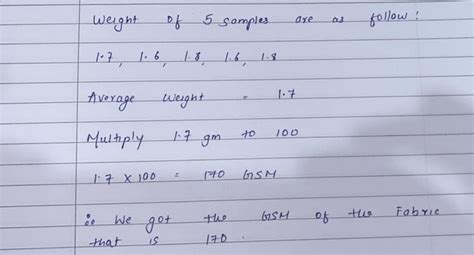 Weight of 5 samples are as follow:
1.7, 1.6, 1.8, 1.6, 1.8
Average Weight = 1.7
Multiply 1.7 gm to 100
1.7 x 100 = 170 GSM
∴ We got the GSM of the Fabric
that is 170.